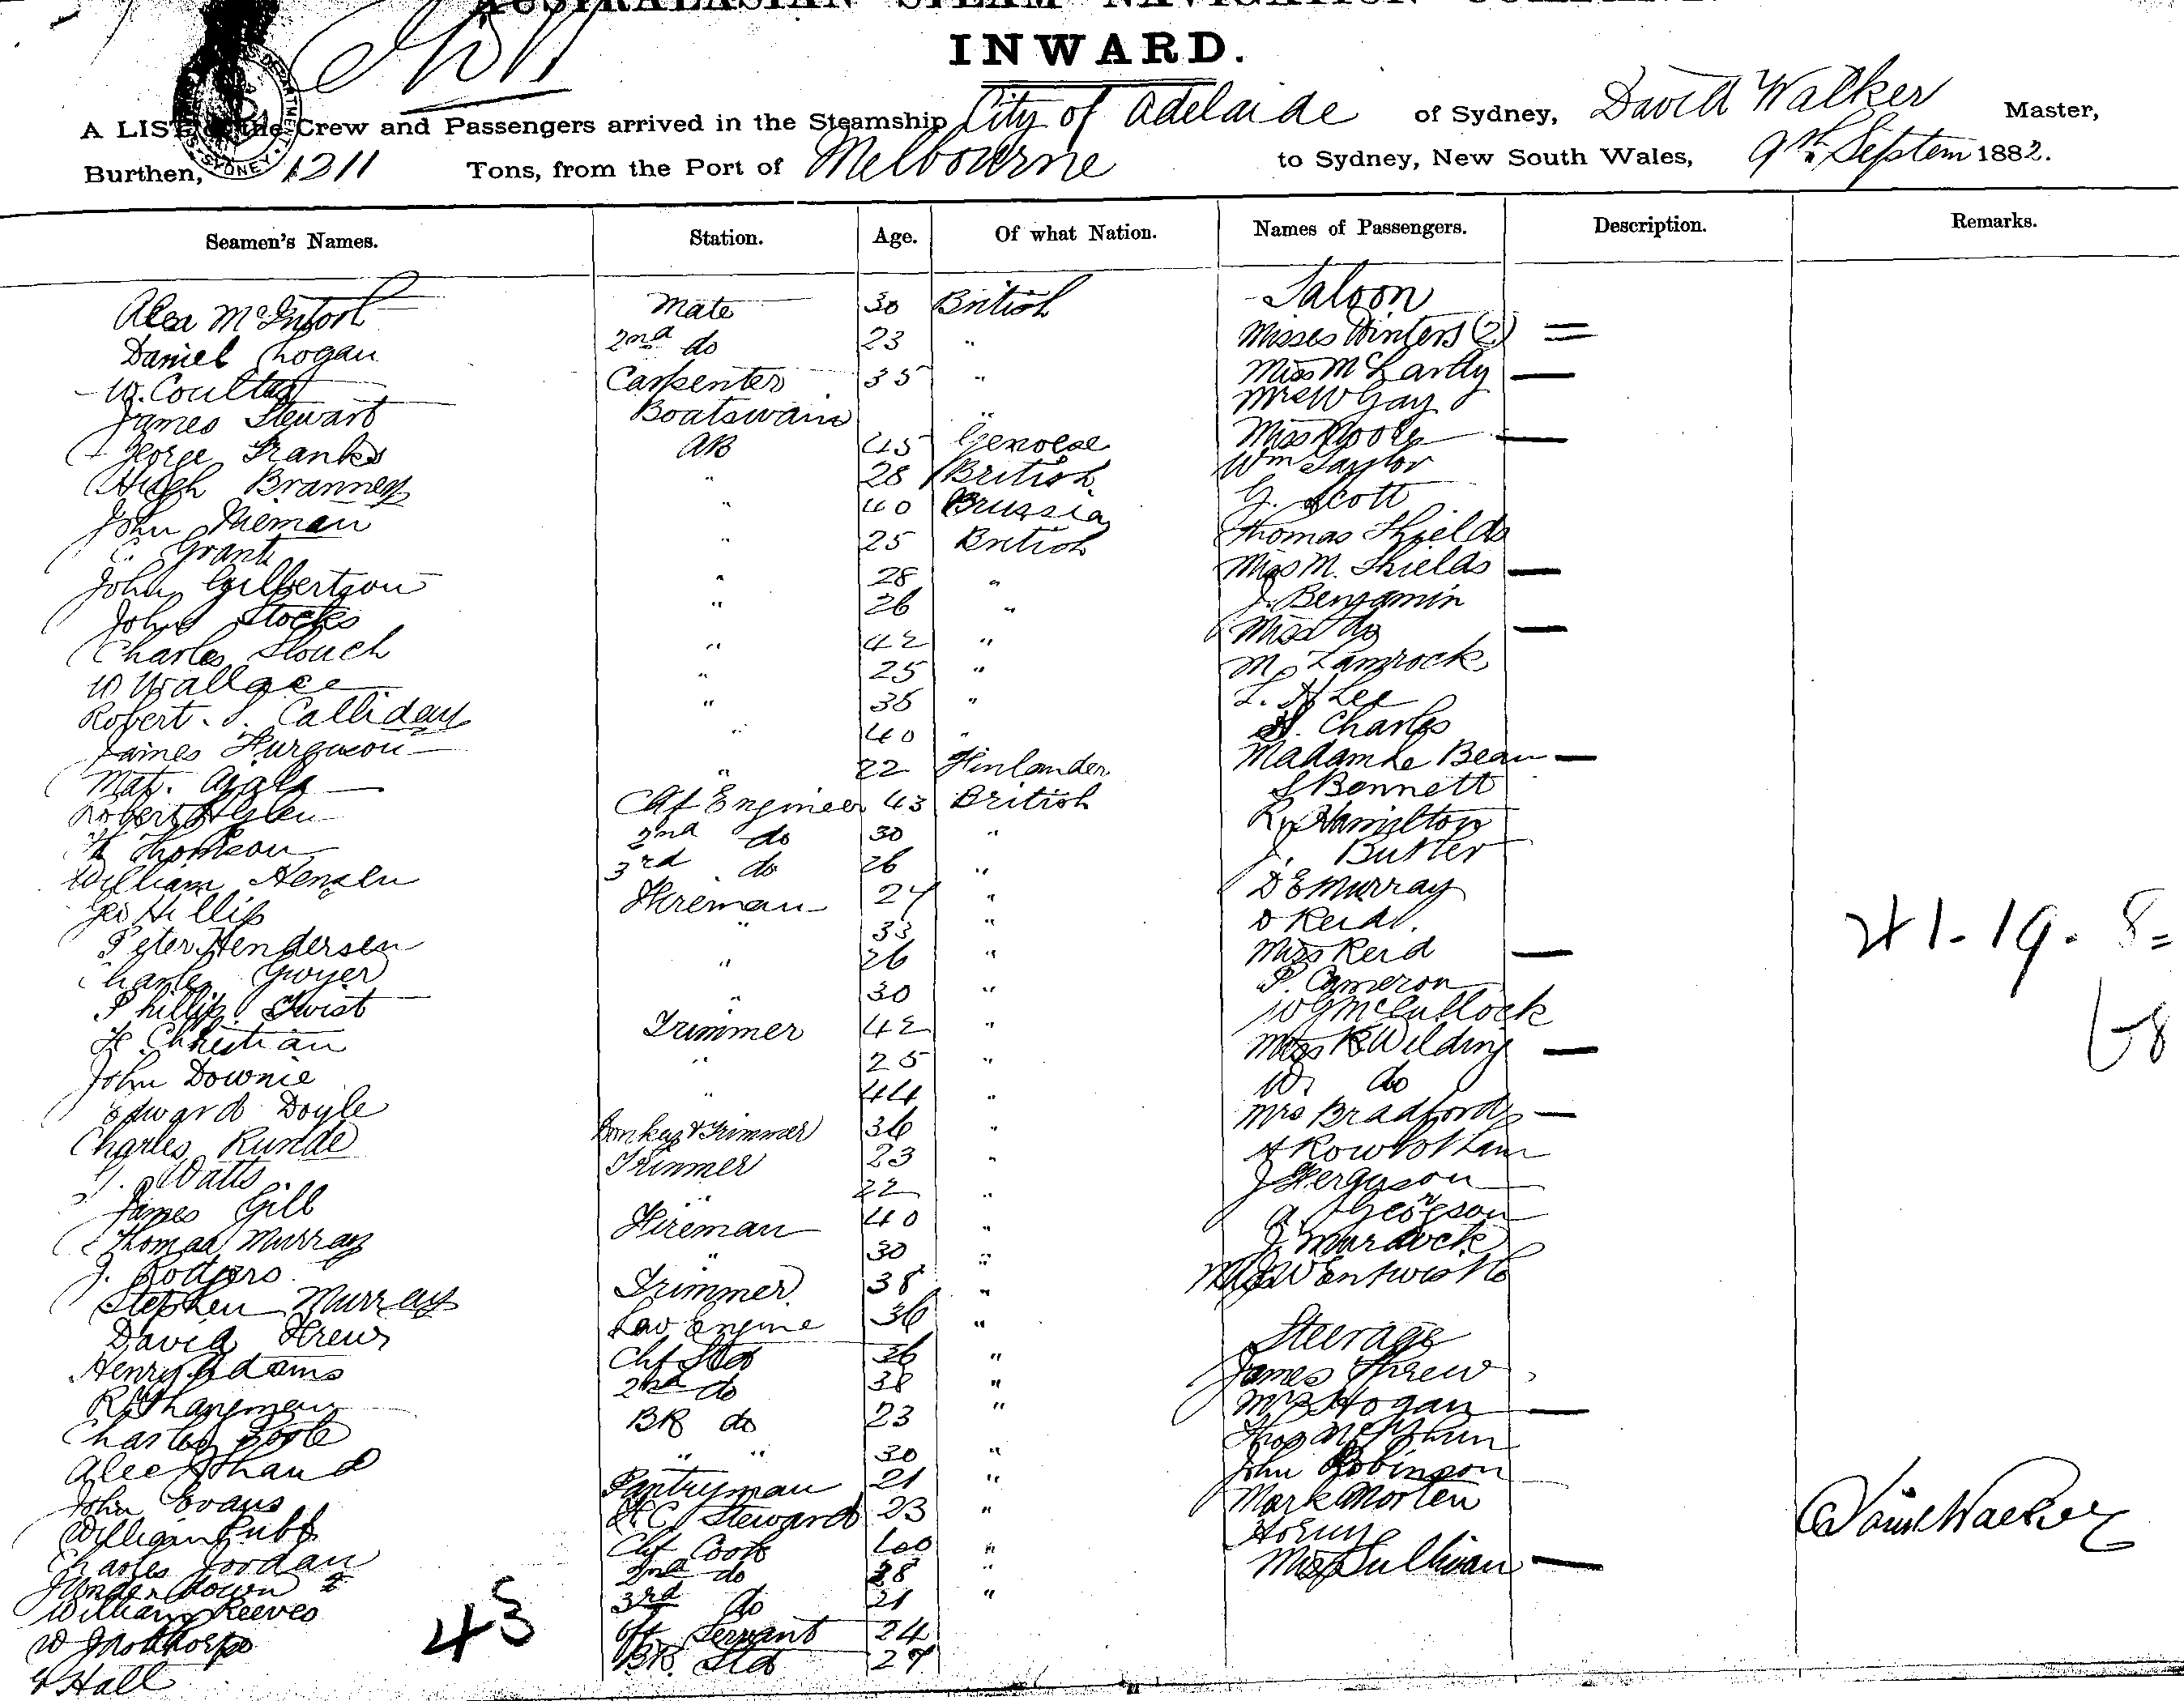 AUSTRALASIAN STEAM NAVIGATION COMPANY
INWARD.
A LIST of the Crew and Passengers arrived in the Steamship City of Adelaide of Sydney, David Walker Master,
Burthen, 1211 Tons, from the Port of Melbourne to Sydney, New South Wales, 9th Septem 1882.
Seamen's Names. Station. Age. Of what Nation. Names of Passengers. Description. Remarks.
Alex McIntosh Mate 30 British Saloon
Daniel Logan 2nd do 23 " Misses Winters (2) =
W. Coultas Carpenter 35 " Miss McLardy —
James Stewart Boatswain " Mrs W Gay
George Franks AB 45 Genoese Miss Poole —
Hugh Branney " 28 British Wm Taylor
John Nieman " 40 Prussia G. Scott
C. Grant " 25 British Thomas Shields
John Gilbertson " 28 " Miss M. Shields —
John Stocks " 26 " J. Benjamin
Charles Slouch " 42 " Miss do —
W Wallace " 25 " M. Lamrock
Robert. S. Calliday " 35 " L. H Lee
James Furguson " 40 " H. Charles
Mat. " 22 Finlander Madam Le Beau —
Robert Chf Engineer 43 British S Bennett
Thomson 2nd do 30 " R. Hamilton
William Henslu 3rd do 26 " J. Butler
Geo Hillis Fireman 27 " D E Murray
Peter Hendersen " 33 " D Reid.
Charles Gwyer " 26 " Miss Reid —
Phillip. Twist " 30 " P. Cameron
H. Christian Trimmer 42 " W G McCullock
John Downie " 25 " Miss K Wilding —
Edward Doyle " 44 " W. do
Charles Runde Donkey & Trimmer 36 " Mrs Bradford —
Watts Trimmer 23 " A Rowbotham
James Gill " 22 " J Ferguson
Thomas Murray Fireman 40 " A Georgson
J. Rodgers " 30 " J Murdock
Stephen Murray Trimmer 38 " W Entwistle
David Frew Lav Engine 36 " Steerage
Henry Adams Chf Std 36 " James Threw
R Thangmen 2nd do 38 " Mrs Hogan —
Charles Poole BR do 23 " Thos
Alec Shand " " 30 " John Robinson
John Evans Pantryman 21 " Mark Morten
William Tubb F.C. Steward 23 "
Charles Jordan Chf Cook 40 " Mrs Sullivan —
down 2nd do 28 "
William Reeves 3rd do 21 "
W Servant 24
Hall BR. Std 27
43
41-19. 8=
68
David Walker